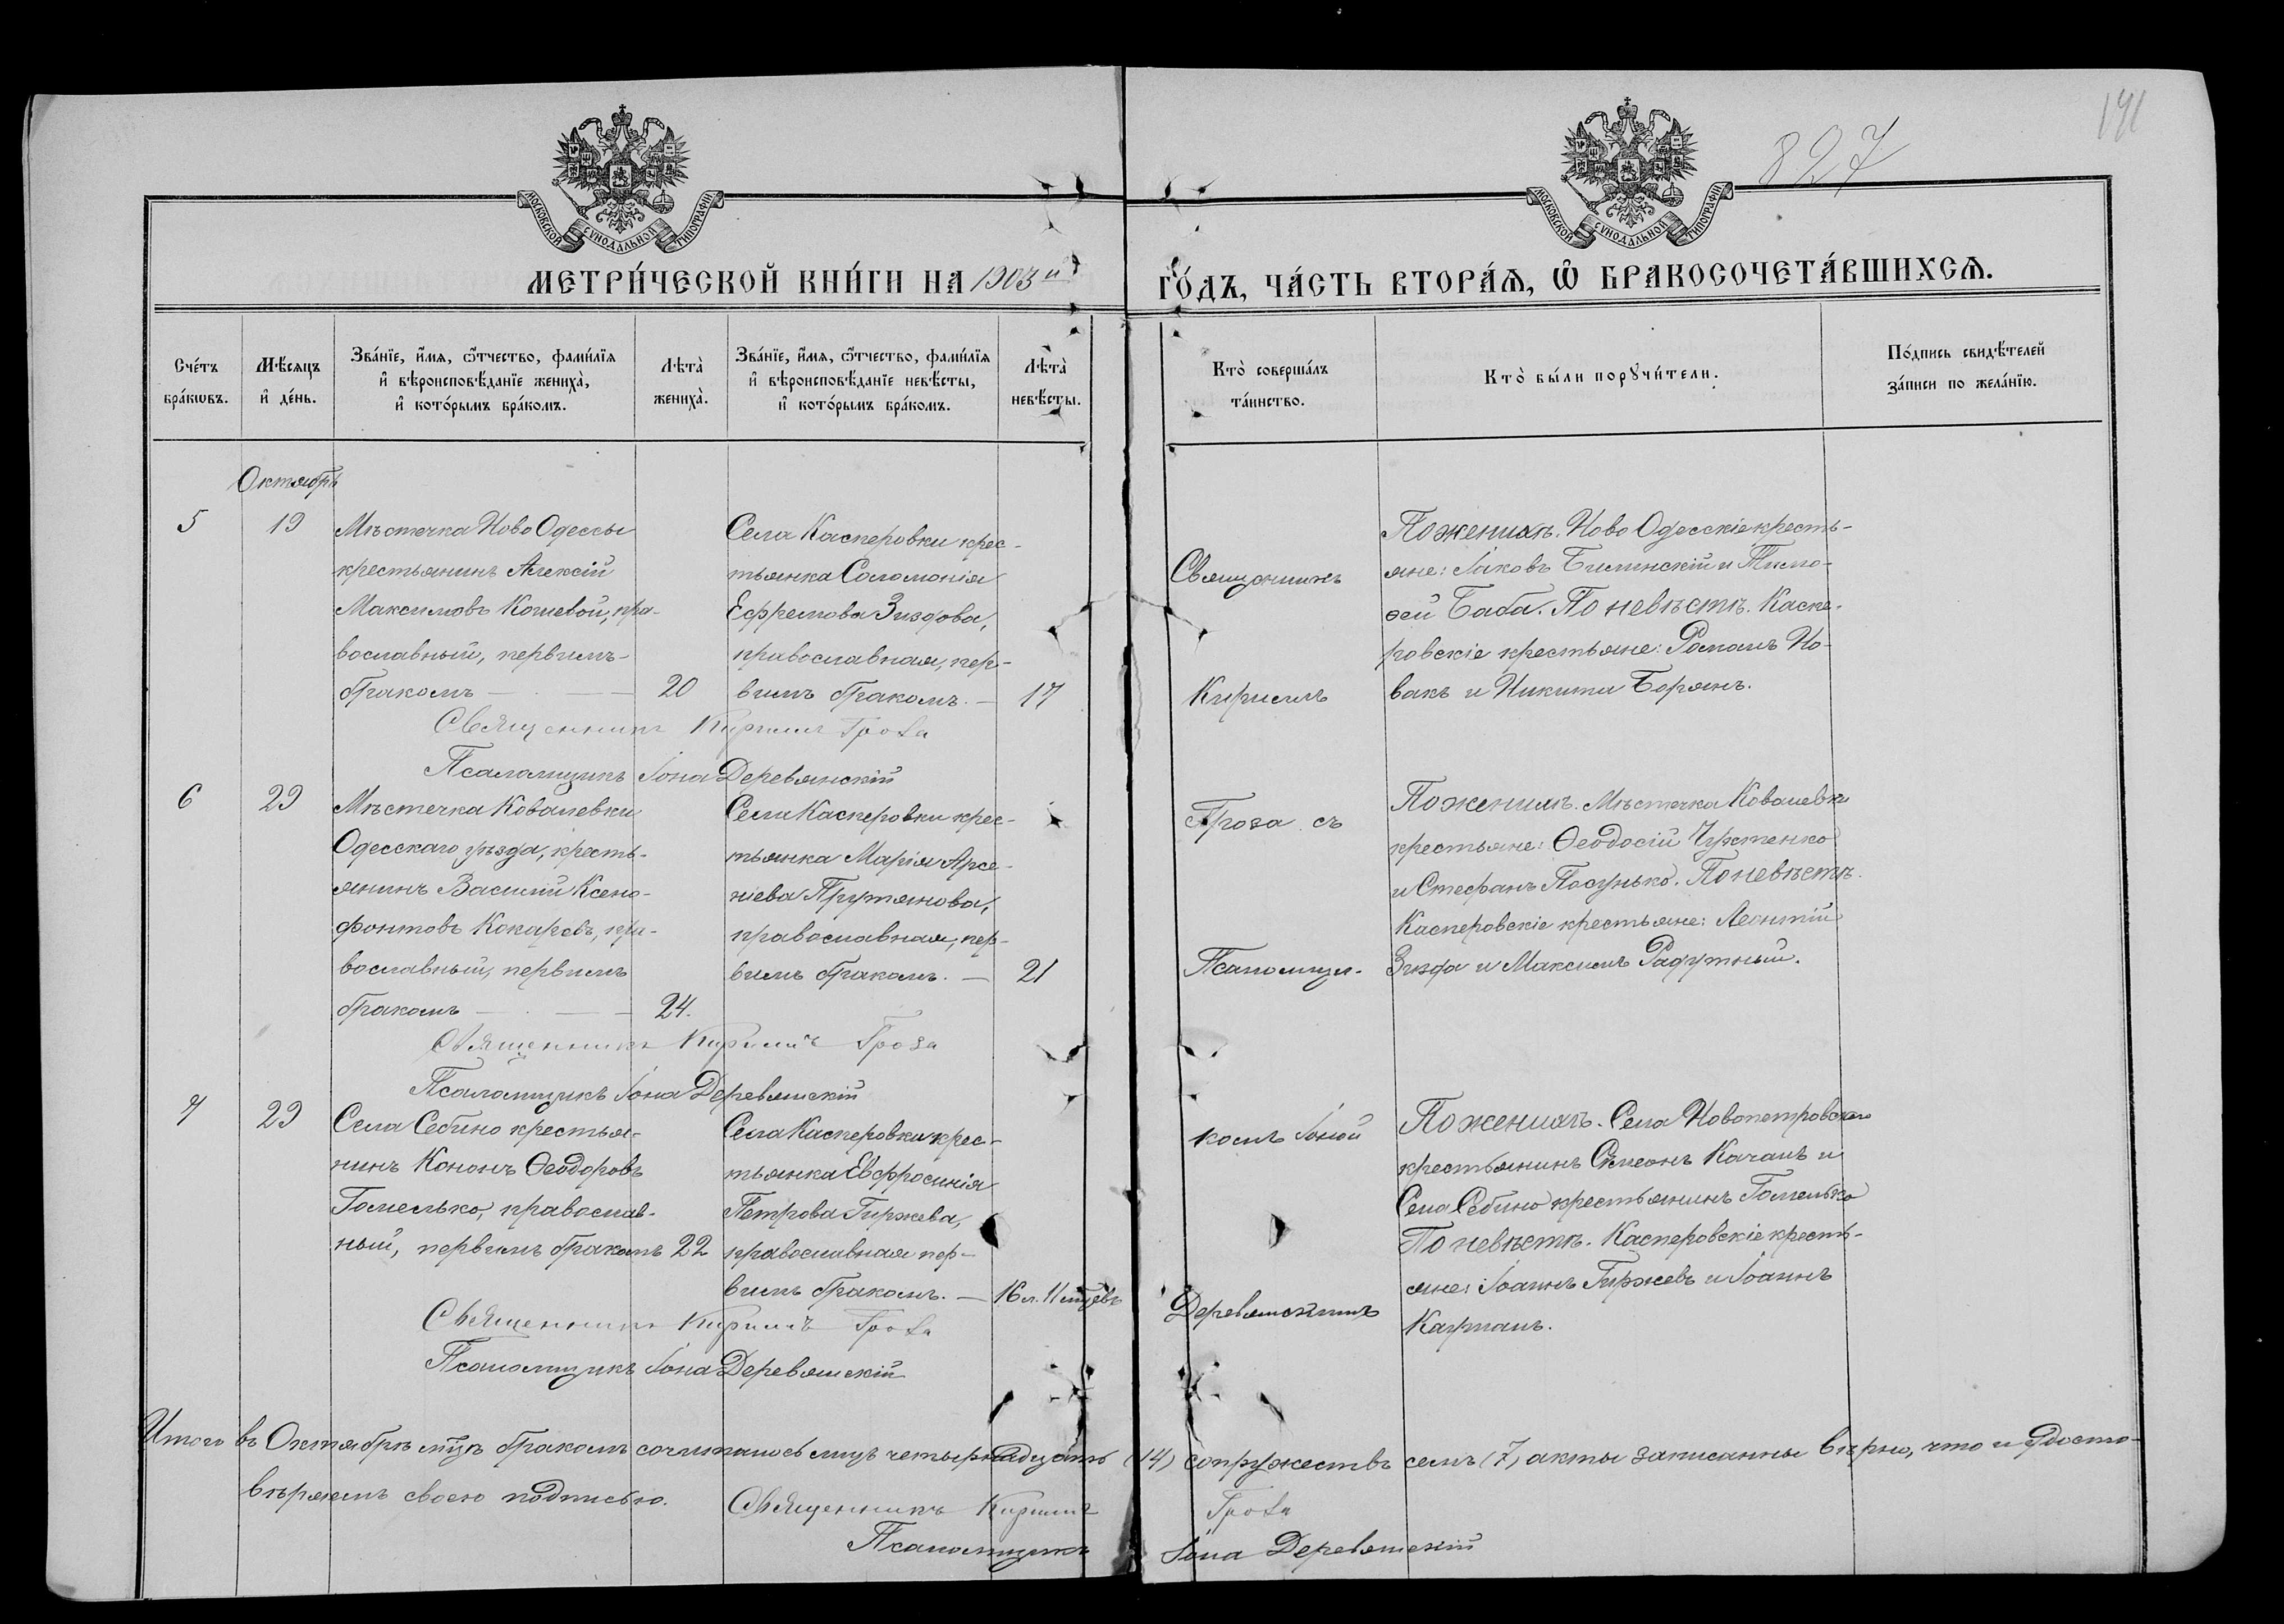 191
827
МОСКОВСКОЙ СѴНОДАЛЬНОЙ ТИПОГРАФІИ
МОСКОВСКОЙ СѴНОДАЛЬНОЙ ТИПОГРАФІИ
МЕТРИ́ЧЕСКОЙ КНИ́ГИ НА 1903й ГО́ДЪ, ЧА́СТЬ ВТОРА́Я, Ѡ БРАКОСОЧЕТА́ВШИХСЯ.
Сче́тъ
бра́кѡвъ.
Мѣ́сяцъ
и҆ де́нь.
Зва́нїе, и҆́мя, ѻ҆́тчество, фами́лїя
и҆ вѣроисповѣ́данїе жениха̀,
и҆ кото́рымъ бра́комъ.
Лѣта̀
жениха̀.
Зва́нїе, и҆́мя, ѻ҆́тчество, фами́лїя
и҆ вѣроисповѣ́данїе невѣ́сты,
и҆ кото́рымъ бра́комъ.
Лѣта̀
невѣ́сты.
Кто̀ соверша́лъ
та́инство.
Кто̀ бы́ли порꙋчи́тели.
По́дпись свидѣ́телей
за́писи по жела́нїю.
Октябрь
5
19
Мѣстечка Ново Одессы
крестьянинъ Алексій
Максимовъ Кошевой, пра-
вославный, первымъ
бракомъ —
20
Села Касперовки крес-
тьянка Саломонія
Ефремова Зиздова,
православная, пер-
вымъ бракомъ. —
17
Священникъ
Кириллъ
По женихѣ. Ново Одесскіе кресть-
яне: Іаковъ Билинскій и Тимо-
ѳей Баба. По невѣстѣ. Каспе-
ровскіе крестьяне: Романъ Но-
вакъ и Никита Борянъ.
Священникъ Кириллъ Гроза
Псаломщикъ Іона Деревянскій
6
29
Мѣстечка Ковалевки
Одесскаго уѣзда, кресть-
янинъ Василій Ксено-
фонтовъ Кокаревъ, пра-
вославный, первымъ
бракомъ —
24.
Села Касперовки крес-
тьянка Марія Арсе-
ніева Прутянова,
православная, пер-
вымъ бракомъ. —
21
Гроза съ
Псаломщи-
По женихѣ. Мѣстечка Ковалевки
крестьяне: Ѳеодосій
и Стефанъ Посунько. По невѣстѣ.
Касперовскіе крестьяне: Леонтій
Зизда и Максимъ Радутный.
Священникъ Кириллъ Гроза
Псаломщикъ Іона Деревянскій
7
29
Села Себино крестья-
нинъ Кононъ Ѳеодоровъ
Гомелько, православ-
ный, первымъ бракомъ
22
Села Касперовки крес-
тьянка Евфросинія
Петрова Гиржева,
православная пер-
вымъ бракомъ. —
16 л. 11 мцевъ
комъ Іоной
Деревянскимъ
По женихѣ. Села Новопетровскаго
крестьянинъ Симеонъ Качанъ и
Села Себино крестьянинъ Гомелько
По невѣстѣ. Касперовскіе кресть-
яне: Іоаннъ Гиржевъ и Іоаннъ
Каушанъ.
Священникъ Кириллъ Гроза
Псаломщикъ Іона Деревянскій
Итого въ Октябрѣ мцѣ бракомъ сочиталось лицъ четырнадцать (14) супружествъ семь (7) акты записанны вѣрно, что и удосто-
вѣряемъ своею подписью.
Священникъ Кириллъ Гроза
Псаломщикъ Іона Деревянскій